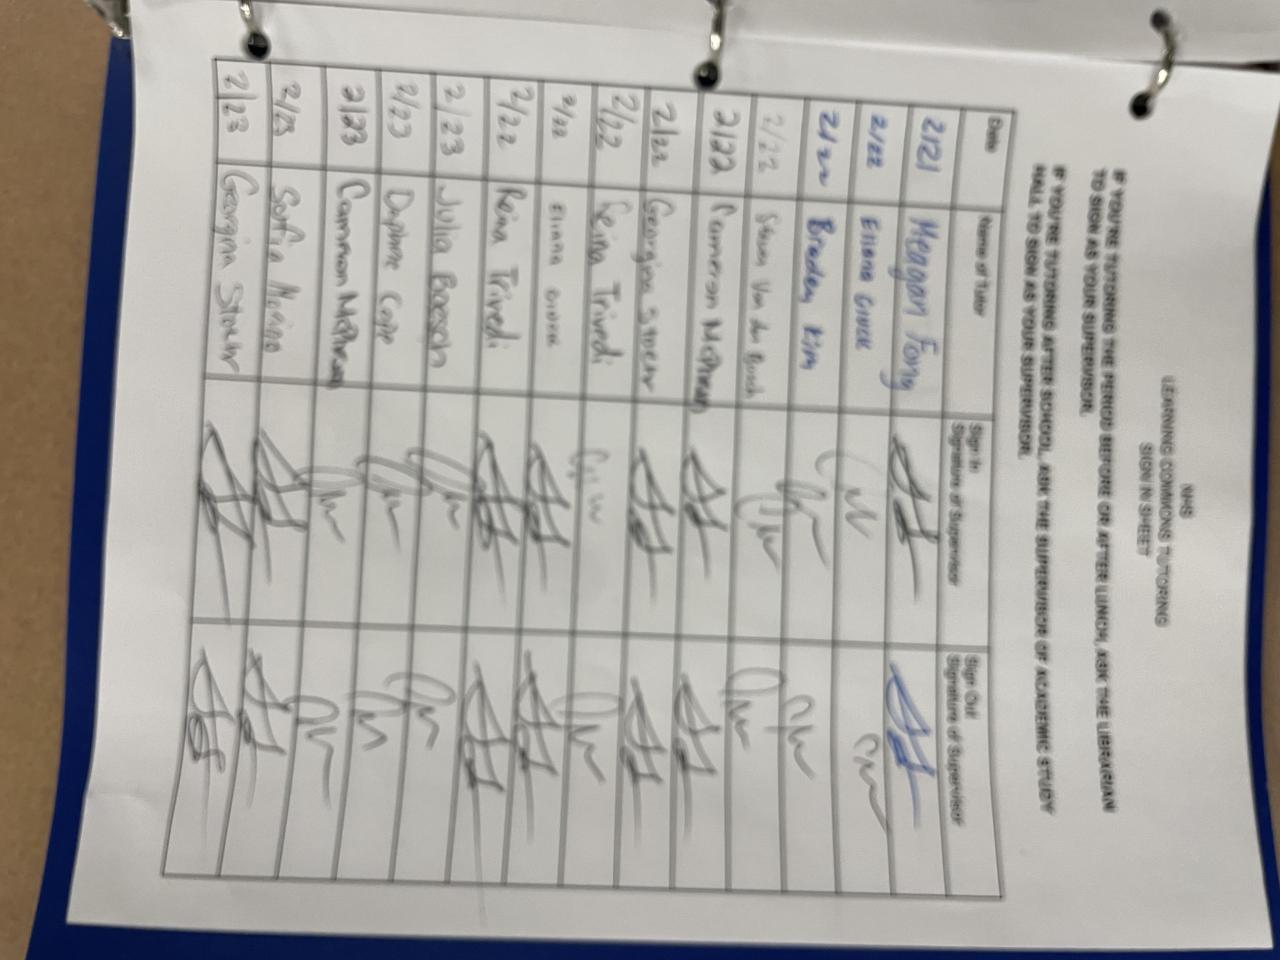 NHS
LEARNING COMMONS TUTORING
SIGN IN SHEET
IF YOU'RE TUTORING THE PERIOD BEFORE OR AFTER LUNCH, ASK THE LIBRARIAN
TO SIGN AS YOUR SUPERVISOR.
IF YOU'RE TUTORING AFTER SCHOOL, ASK THE SUPERVISOR OF ACADEMIC STUDY
HALL TO SIGN AS YOUR SUPERVISOR.
Date Name of Tutor Sign In Signature of Supervisor Sign Out Signature of Supervisor
2/21 Meagan Fong
2/22 Eliana
2/22 Braden Kim
2/22 Steven Van den Bosch
2/22 Cameron McPherson
2/22 Georgina Stoehr
2/22 Reina Trivedi
2/22 Eliana
2/22 Reina Trivedi
2/23 Julia Boesch
2/23 Daphne
2/23 Cameron McPherson
2/23 Sofia
2/23 Georgina Stoehr